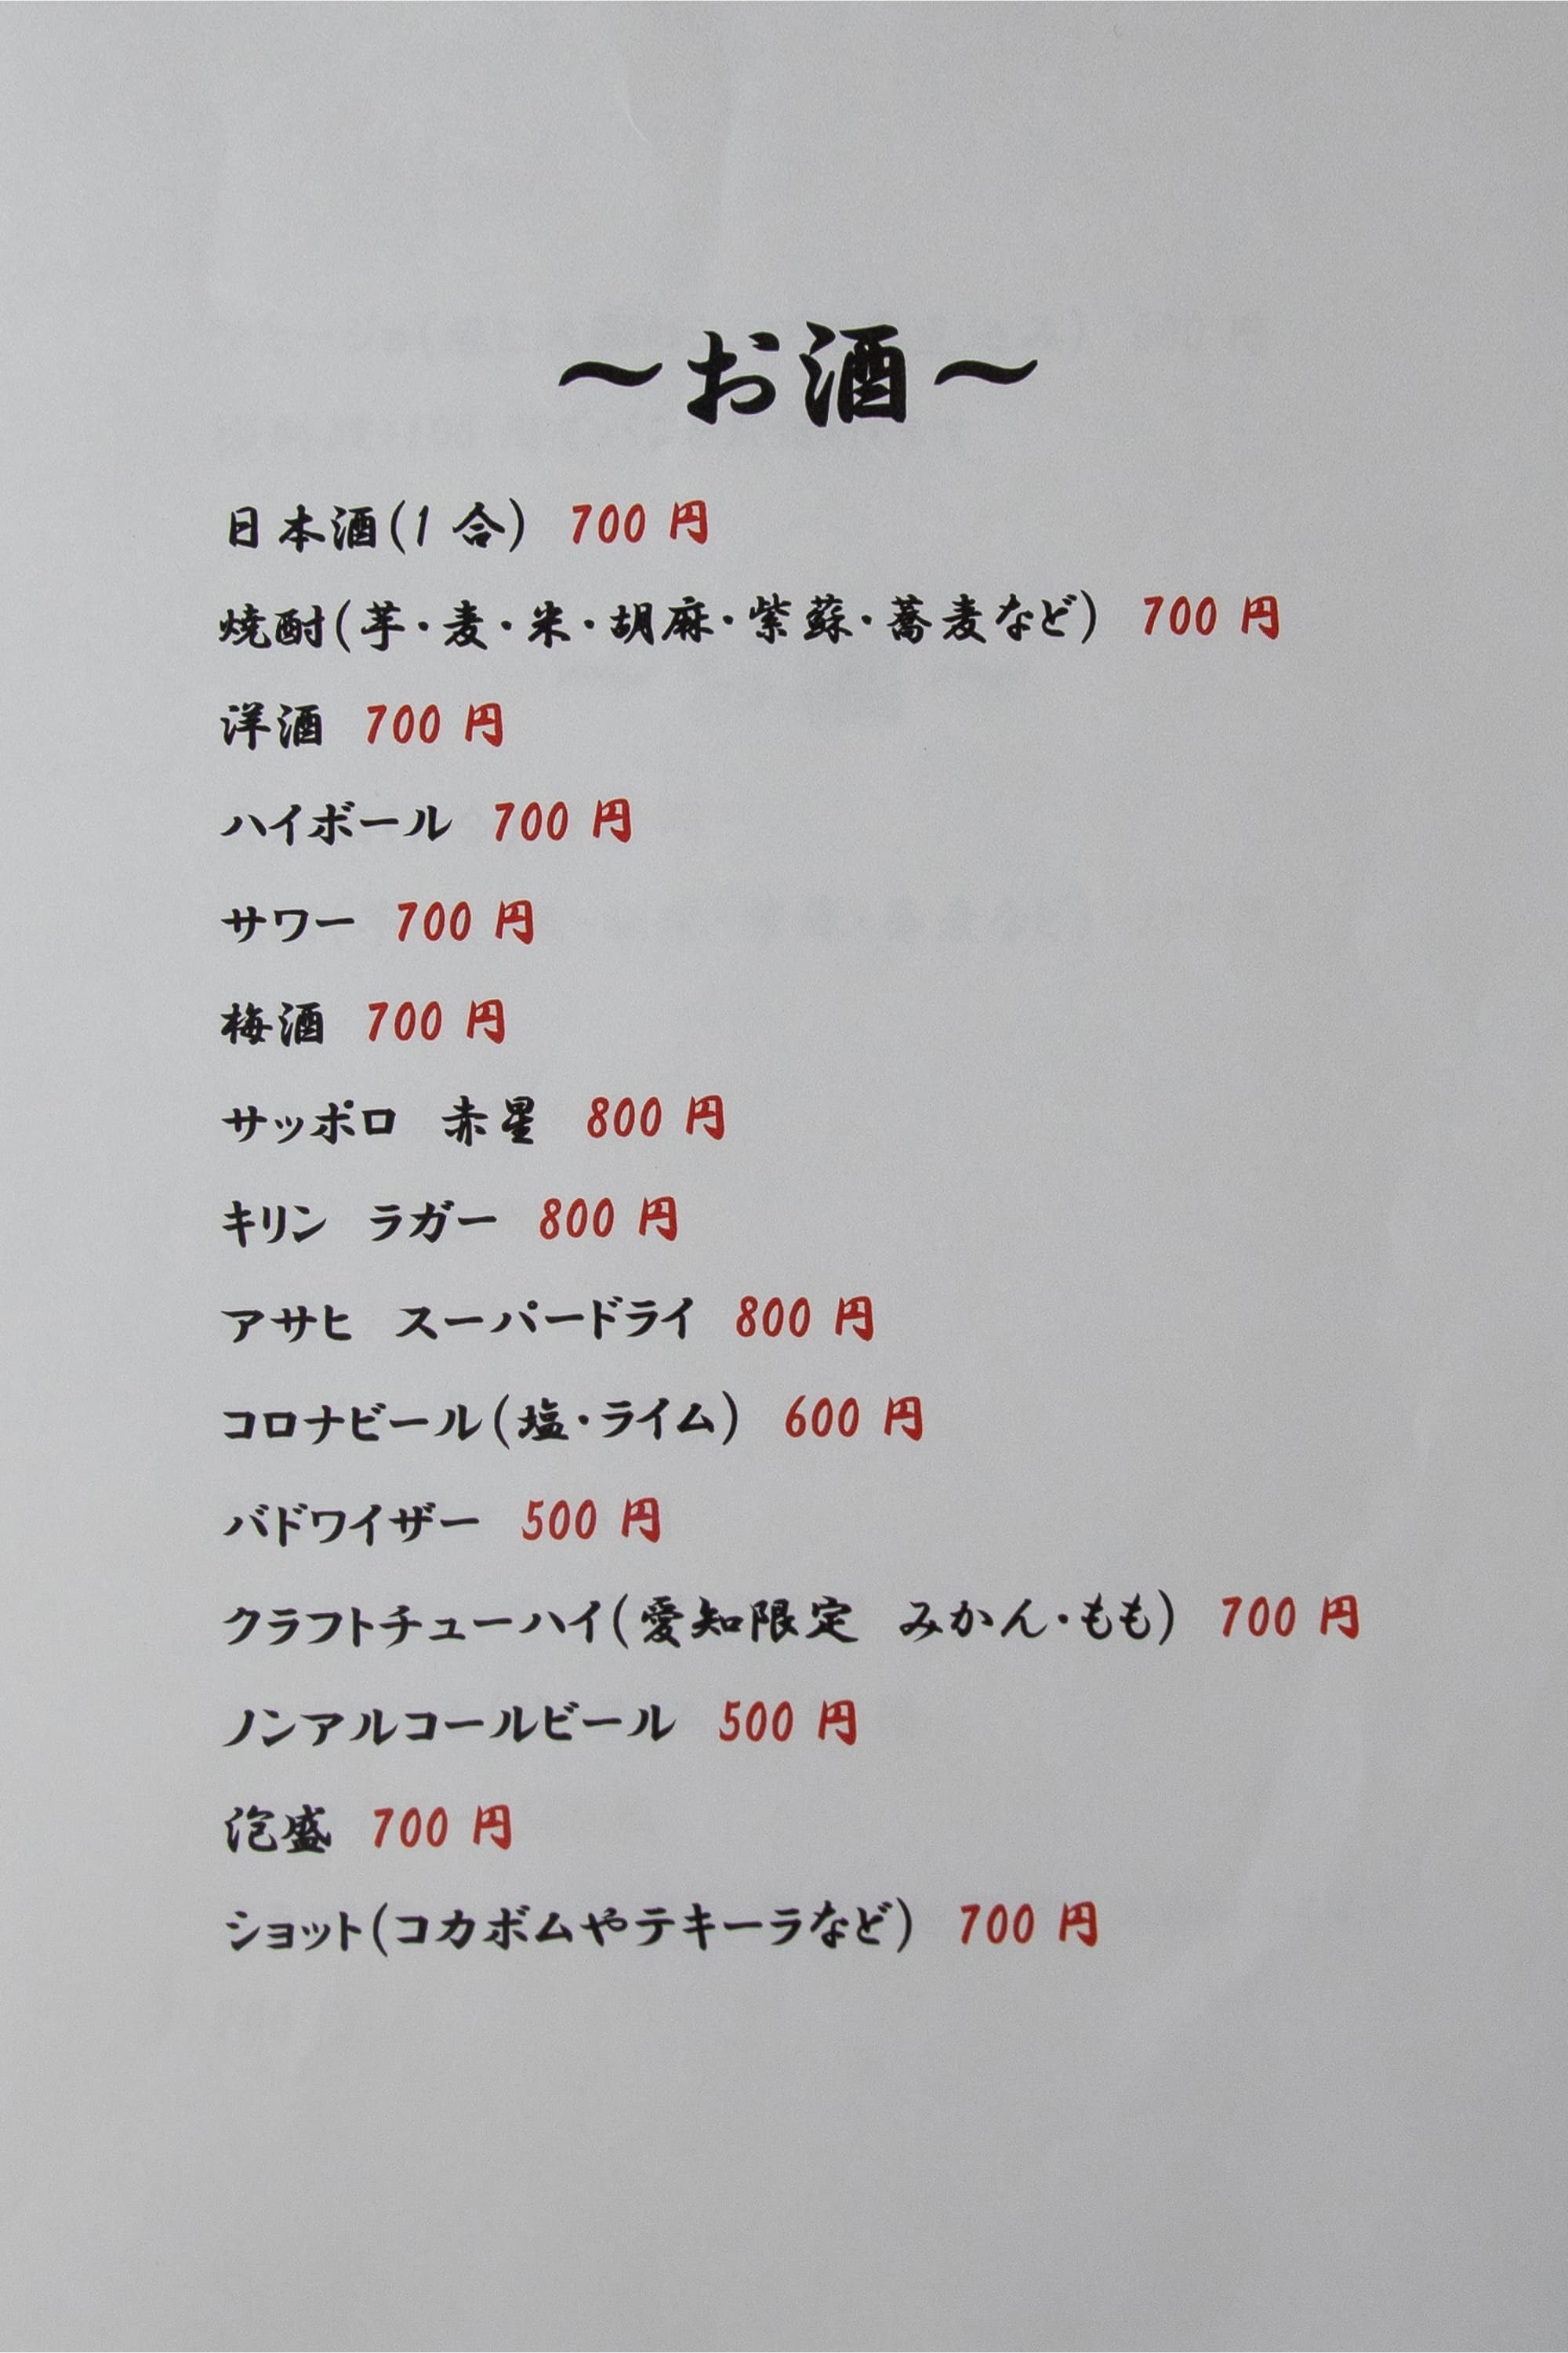 ～お酒～
日本酒(1 合) 700 円
焼酎(芋・麦・米・胡麻・紫蘇・蕎麦など) 700 円
洋酒 700 円
ハイボール 700 円
サワー 700 円
梅酒 700 円
サッポロ 赤星 800 円
キリン ラガー 800 円
アサヒ スーパードライ 800 円
コロナビール(塩・ライム) 600 円
バドワイザー 500 円
クラフトチューハイ(愛知限定 みかん・もも) 700 円
ノンアルコールビール 500 円
泡盛 700 円
ショット(コカボムやテキーラなど) 700 円